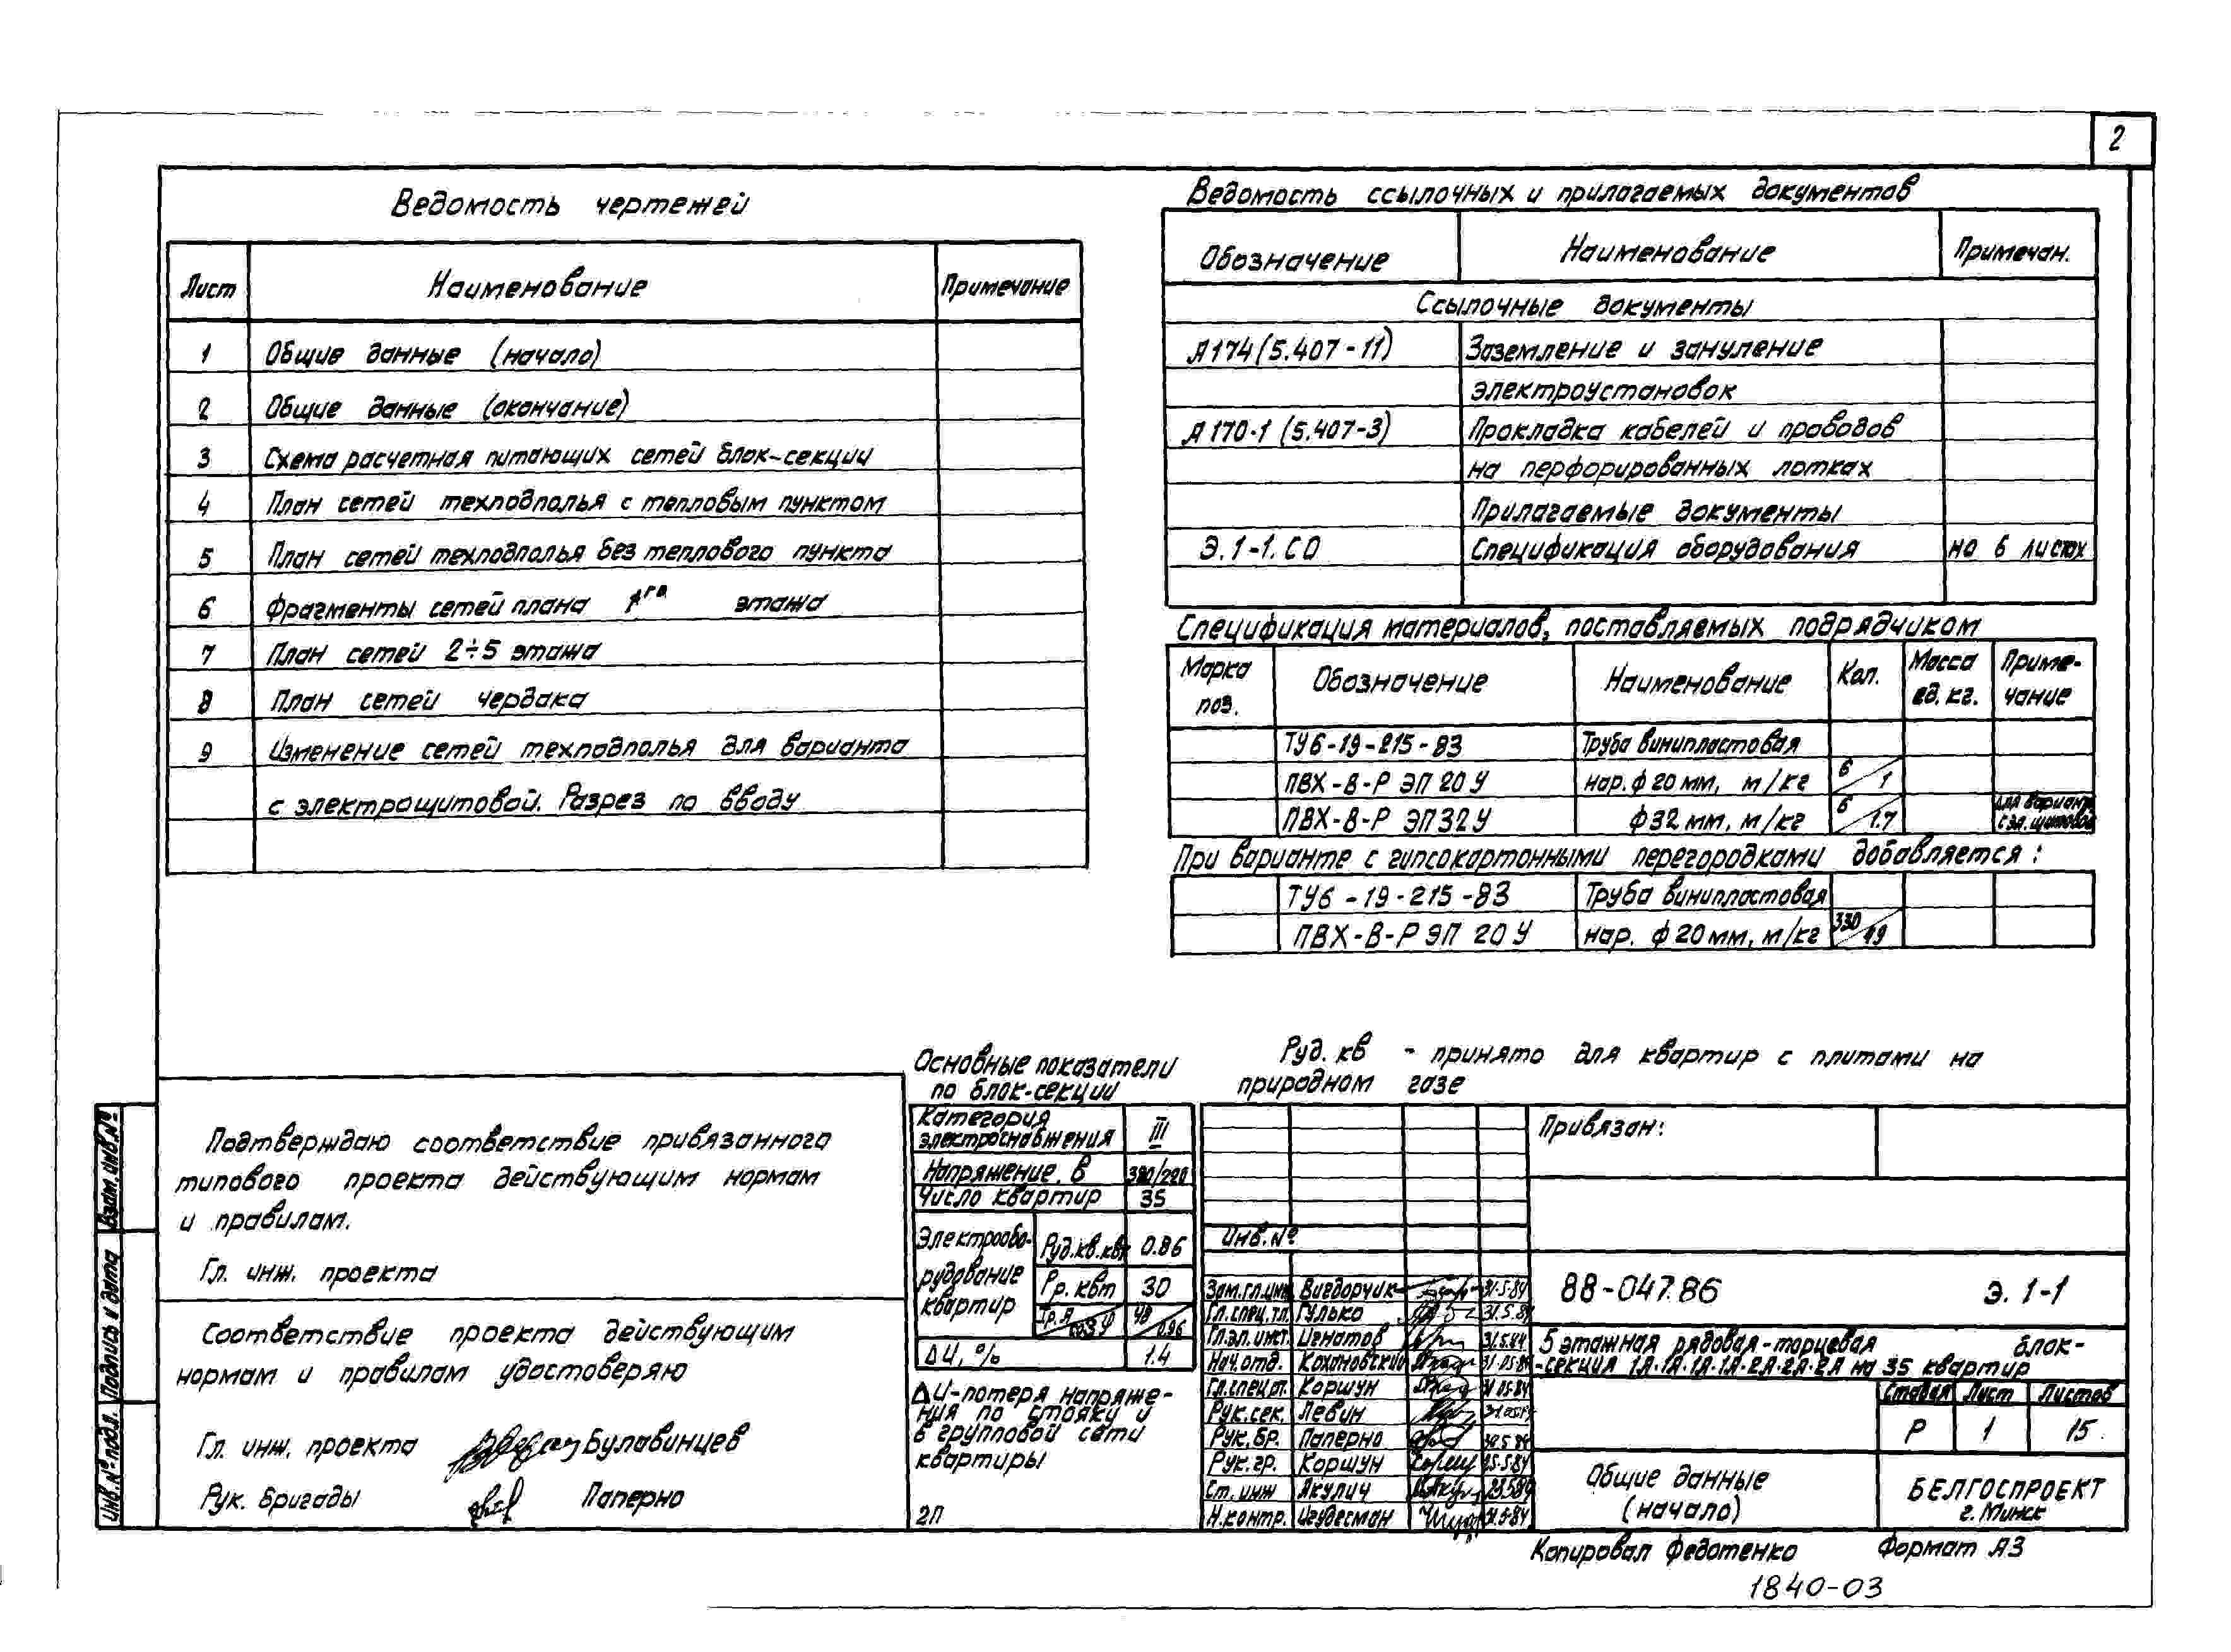 2
Ведомость чертежей
Лист Наименование Примечание
1 Общие данные (начало)
2 Общие данные (окончание)
3 Схема расчетная питающих сетей блок-секции
4 План сетей техподполья с тепловым пунктом
5 План сетей техподполья без теплового пункта
6 Фрагменты сетей плана 1го этажа
7 План сетей 2÷5 этажа
8 План сетей чердака
9 Изменение сетей техподполья для варианта
с электрощитовой. Разрез по вводу
Ведомость ссылочных и прилагаемых документов
Обозначение Наименование Примечан.
Ссылочные документы
А174 (5.407-11) Заземление и зануление
электроустановок
А170-1 (5.407-3) Прокладка кабелей и проводов
на перфорированных лотках
Прилагаемые документы
Э.1-1.СО Спецификация оборудования на 6 листах
Спецификация материалов, поставляемых подрядчиком
Марка поз. Обозначение Наименование Кол. Масса ед. кг. Приме-чание
ТУ6-19-215-83 Труба винипластовая
ПВХ-В-Р ЭП 20 У нар. ф 20 мм, м/кг 6/1
ПВХ-В-Р ЭП 32 У ф 32 мм, м/кг 6/1.7 для вариант. с эл. щитовой
При варианте с гипсокартонными перегородками добавляется:
ТУ6-19-215-83 Труба винипластовая
ПВХ-В-Р ЭП 20 У нар. ф 20 мм, м/кг 330/49
Подтверждаю соответствие привязанного
типового проекта действующим нормам
и правилам.
Гл. инж. проекта
Соответствие проекта действующим
нормам и правилам удостоверяю
Гл. инж. проекта Булавинцев
Рук. бригады Паперно
Взам. инв. №
Подпись и дата
Инв. № подл.
Основные показатели
по блок-секции
Категория
электроснабжения III
Напряжение, В 380/220
Число квартир 35
Электрообо-
рудование
квартир
Руд.кв.квт 0.86
Рр. квт 30
Iр. А/cosφ 48/0.96
ΔU, % 1.4
ΔU-потеря напряже-
ния по стояку и
в групповой сети
квартиры
2П
Руд. кв - принято для квартир с плитами на
природном газе
Привязан:
Инв. №
Зам.гл.инж. Вигдорчик 31.5.84
Гл.спец.тл. Гулько 31.5.84
Гл.эл.инст. Игнатов 31.5.84
Нач.отд. Кохановский 31.05.84
Гл.спец.от. Коршун 31.05.84
Рук.сек. Левин
Рук. бр. Паперно 30.5.84
Рук. гр. Коршун 25.5.84
Ст. инж Якулич 23.5.84
Н.контр. Игудесман 31.5.84
88-047.86 Э. 1-1
5 этажная рядовая-торцевая блок-
-секция 1А.1А.1А.1А.2А.2А.2А на 35 квартир
Стадия Лист Листов
Р 1 15
Общие данные
(начало)
БЕЛГОСПРОЕКТ
г. Минск
Копировал Федотенко Формат А3
1840-03